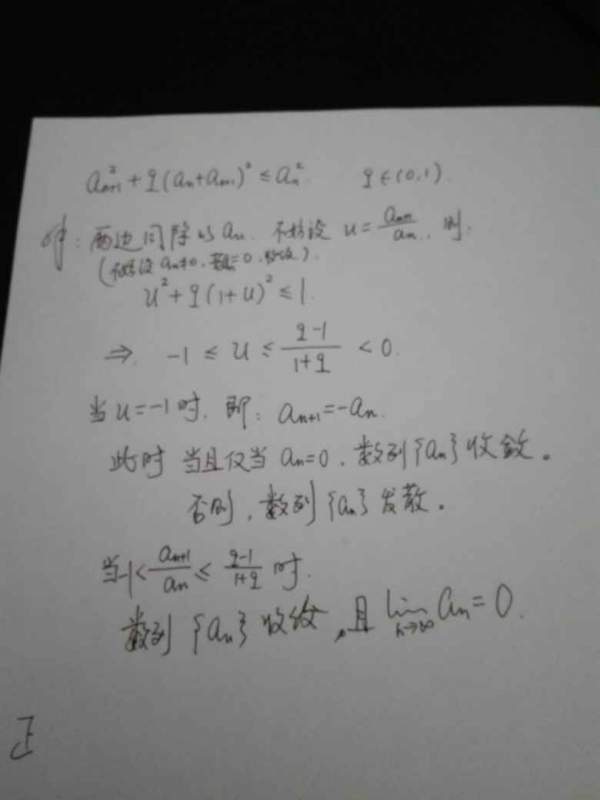 a²ₙ₊₁ + q(aₙ+aₙ₊₁)² ≤ aₙ². q∈(0,1).
解: 两边同除以 aₙ. 不妨设 u = aₙ₊₁/aₙ, 则:
(不妨设 aₙ≠0, 若aₙ=0, 收敛).
u² + q(1+u)² ≤ 1.
⇒ -1 ≤ u ≤ (q-1)/(1+q) < 0.
当 u=-1 时, 即: aₙ₊₁=-aₙ.
此时 当且仅当 aₙ=0, 数列{aₙ}收敛。
否则, 数列{aₙ}发散。
当-1<aₙ₊₁/aₙ ≤ (q-1)/(1+q) 时.
数列{aₙ}收敛, 且 lim n→∞ aₙ=0.